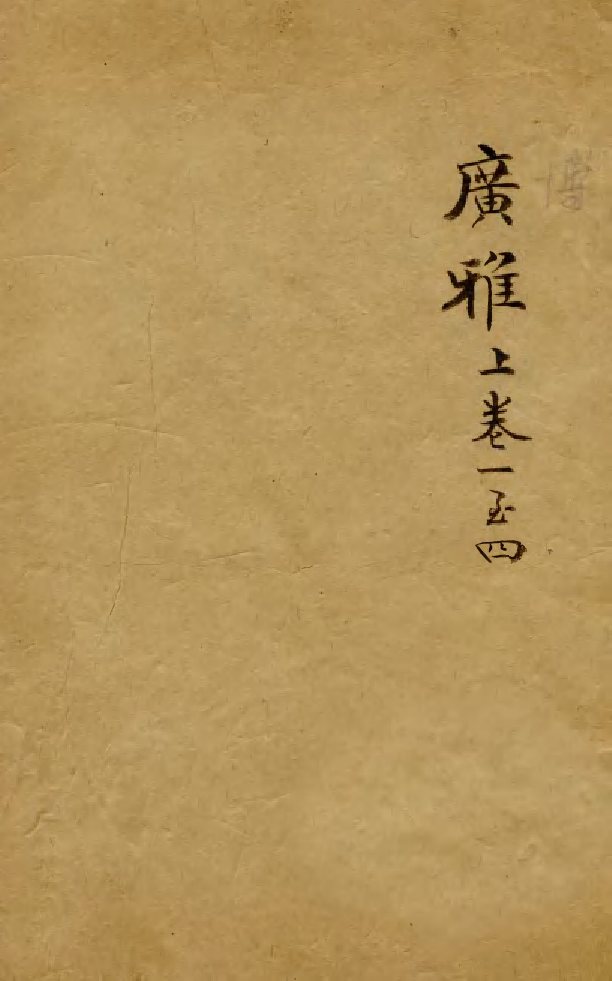 博
廣雅上卷一至四